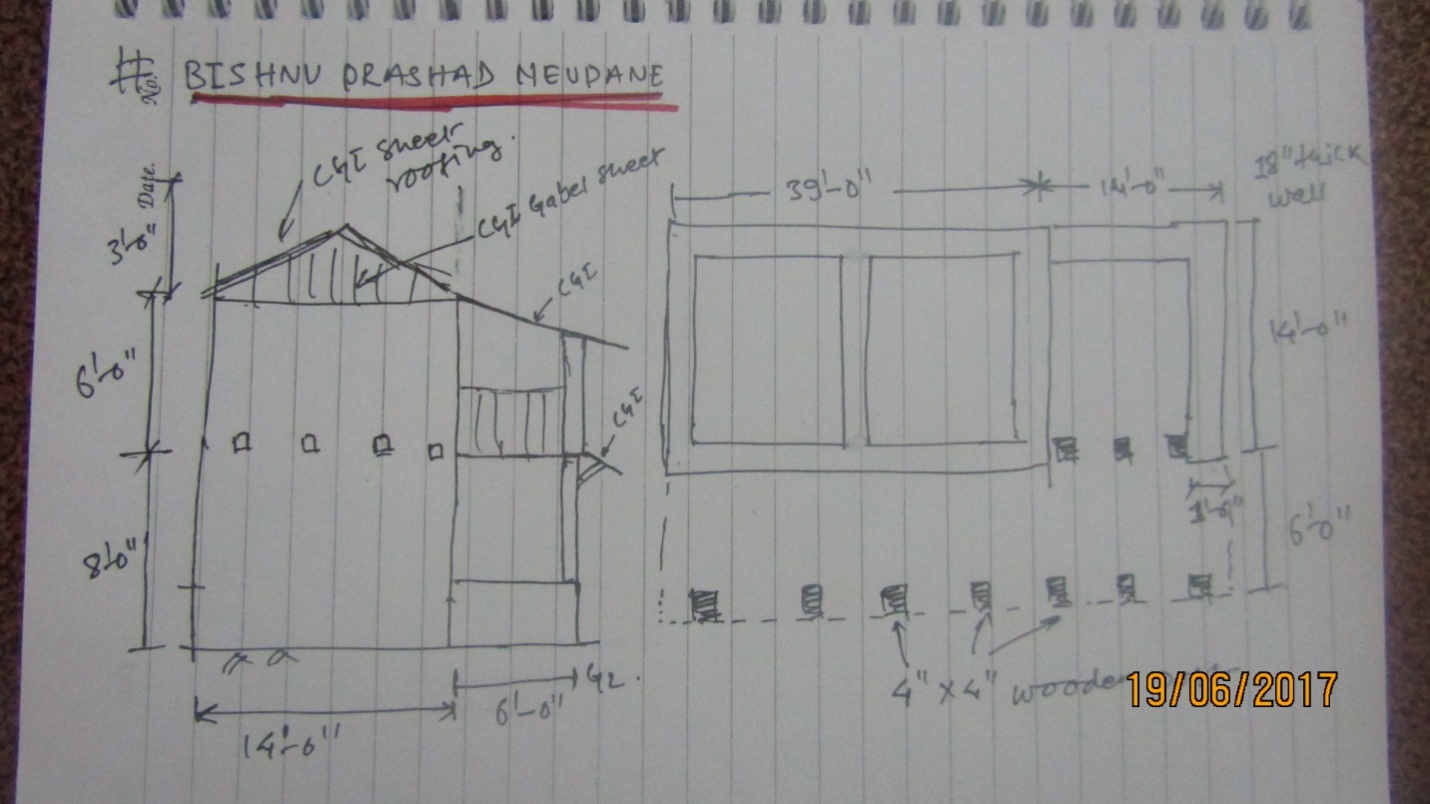 No.
BISHNU PRASHAD NEUPANE
Date.
CGI Sheet
roofing.
CGI Gabel sheet
CGI
CGI
3'-0"
6'-0"
8'-0"
14'-0"
6'-0"
GL.
39'-0"
14'-0"
18" thick
wall
14'-0"
1'-6"
6'-0"
4" x 4" wooden
19/06/2017